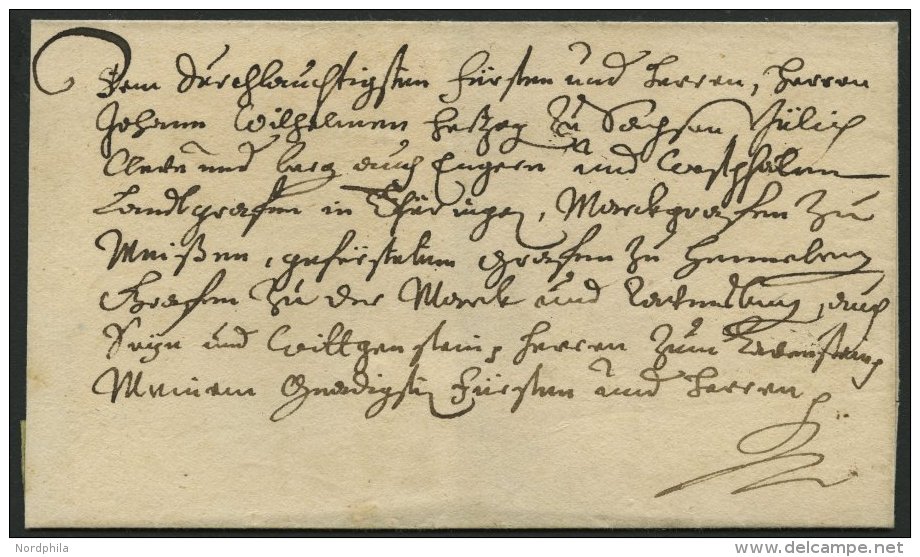 Dem Durchlauchtigsten Fürsten und Herren, Herren
Johann Wilhelmen Hertzog zu Sachsen Jülich
Cleve und berg auch Engern und Westphalen
Landtgrafen in Thüringen, Marckgrafen zu
Meißen, gefürsteten Grafen zu Henneberg
Grafen zu der Marck und Ravensburg, auch
Seyn und Wittgenstein, Herren zum Ravenstein,
Meinem Gnedigsten Fürsten und Herren
Nordphila
www.delcampe.net